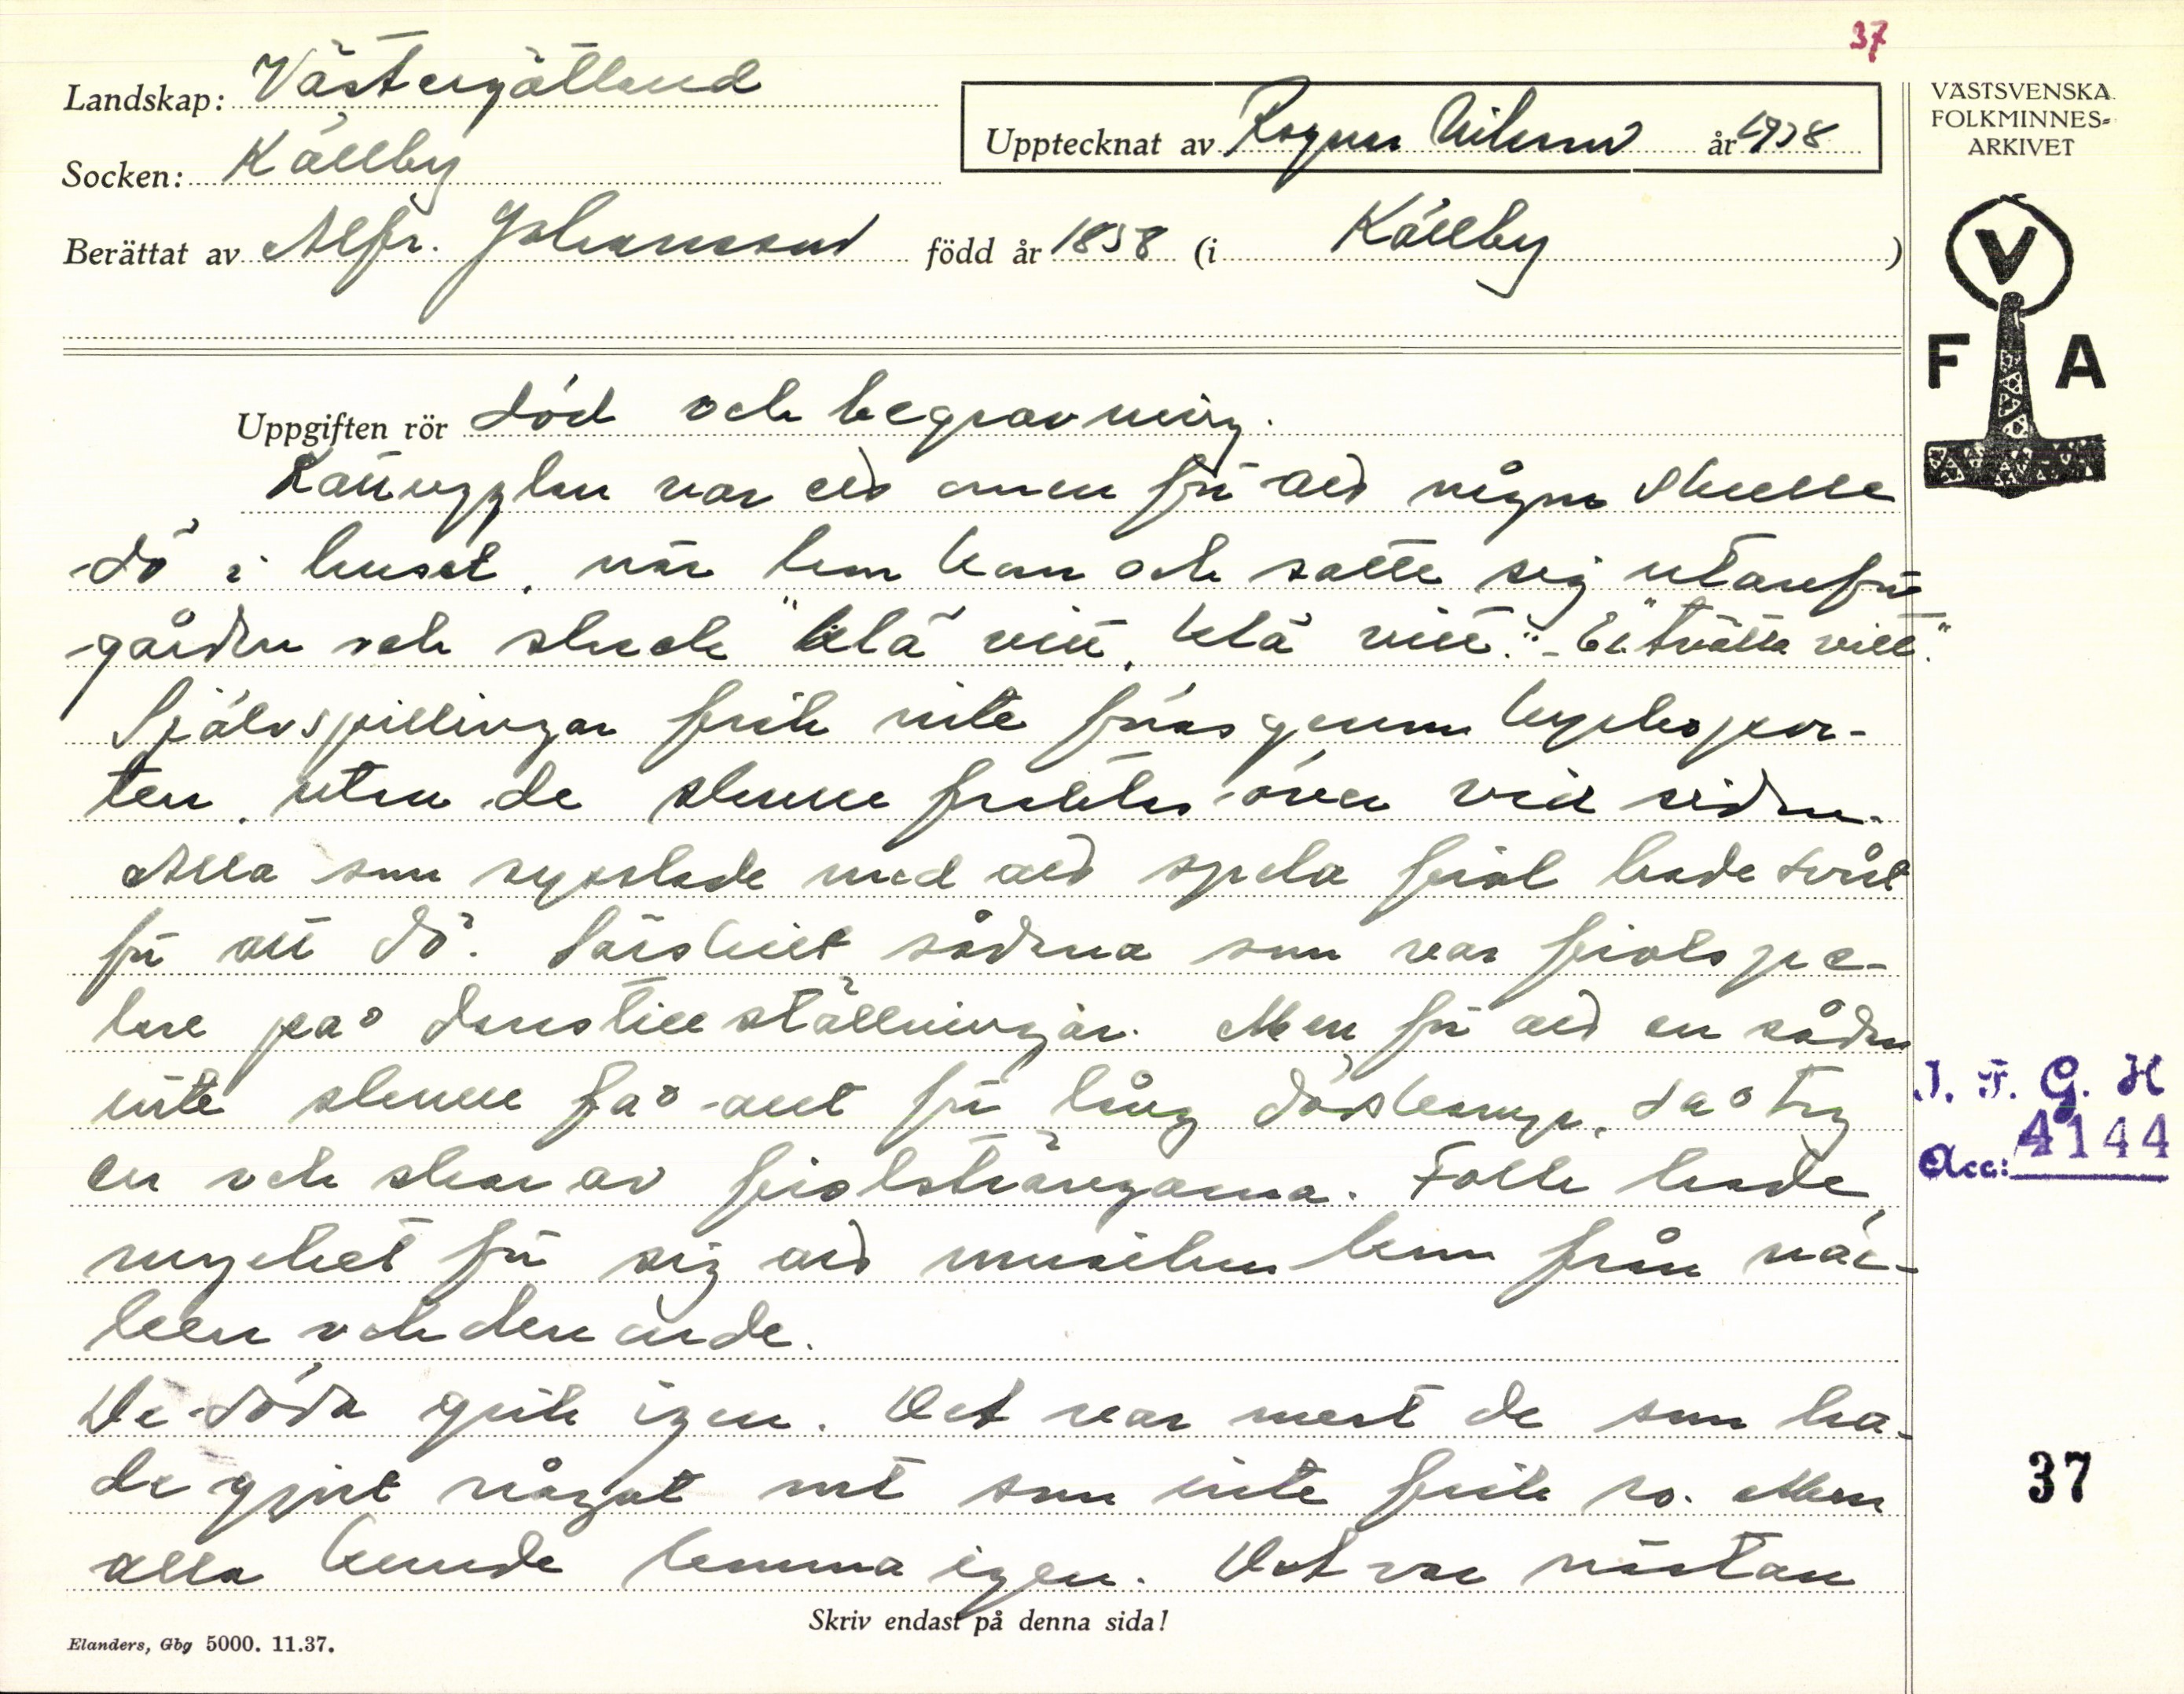 37
Landskap: Västergötland
Socken: Källby
Berättat av Alfr. Johansson född år 1858 (i Källby)
Upptecknat av Ragnar Nilsson år 1938
VÄSTSVENSKA
FOLKMINNES-
ARKIVET
V
F A
Uppgiften rör död och begravning.
Kattugglan var ett omen för att någon skulle
dö i huset, när hon kom och satte sig utanför
gården och skrek "klä vitt, klä vitt." - El. "tvätta vitt."
Självspillingar fick inte föras genom kyrkopor-
ten, utan de skulle fraktas över vid sidan.
Alla som sysslade med att spela fiol hade svårt
för att dö. Särskilt sådana som var fiolspe-
lare på danstillställningar. Men för att en sådan
inte skulle få allt för lång dödskamp, då tog
en och skar av fiolsträngarna. Folk hade
mycket för sig att musiken kom från näc-
ken och den onde.
De döda gick igen. Det var mest de som ha-
de gjort något ont som inte fick ro. Men
alla kunde komma igen. Det var nästan
J. F. G. H
Acc: 4144
37
Skriv endast på denna sida!
Elanders, Gbg 5000. 11.37.